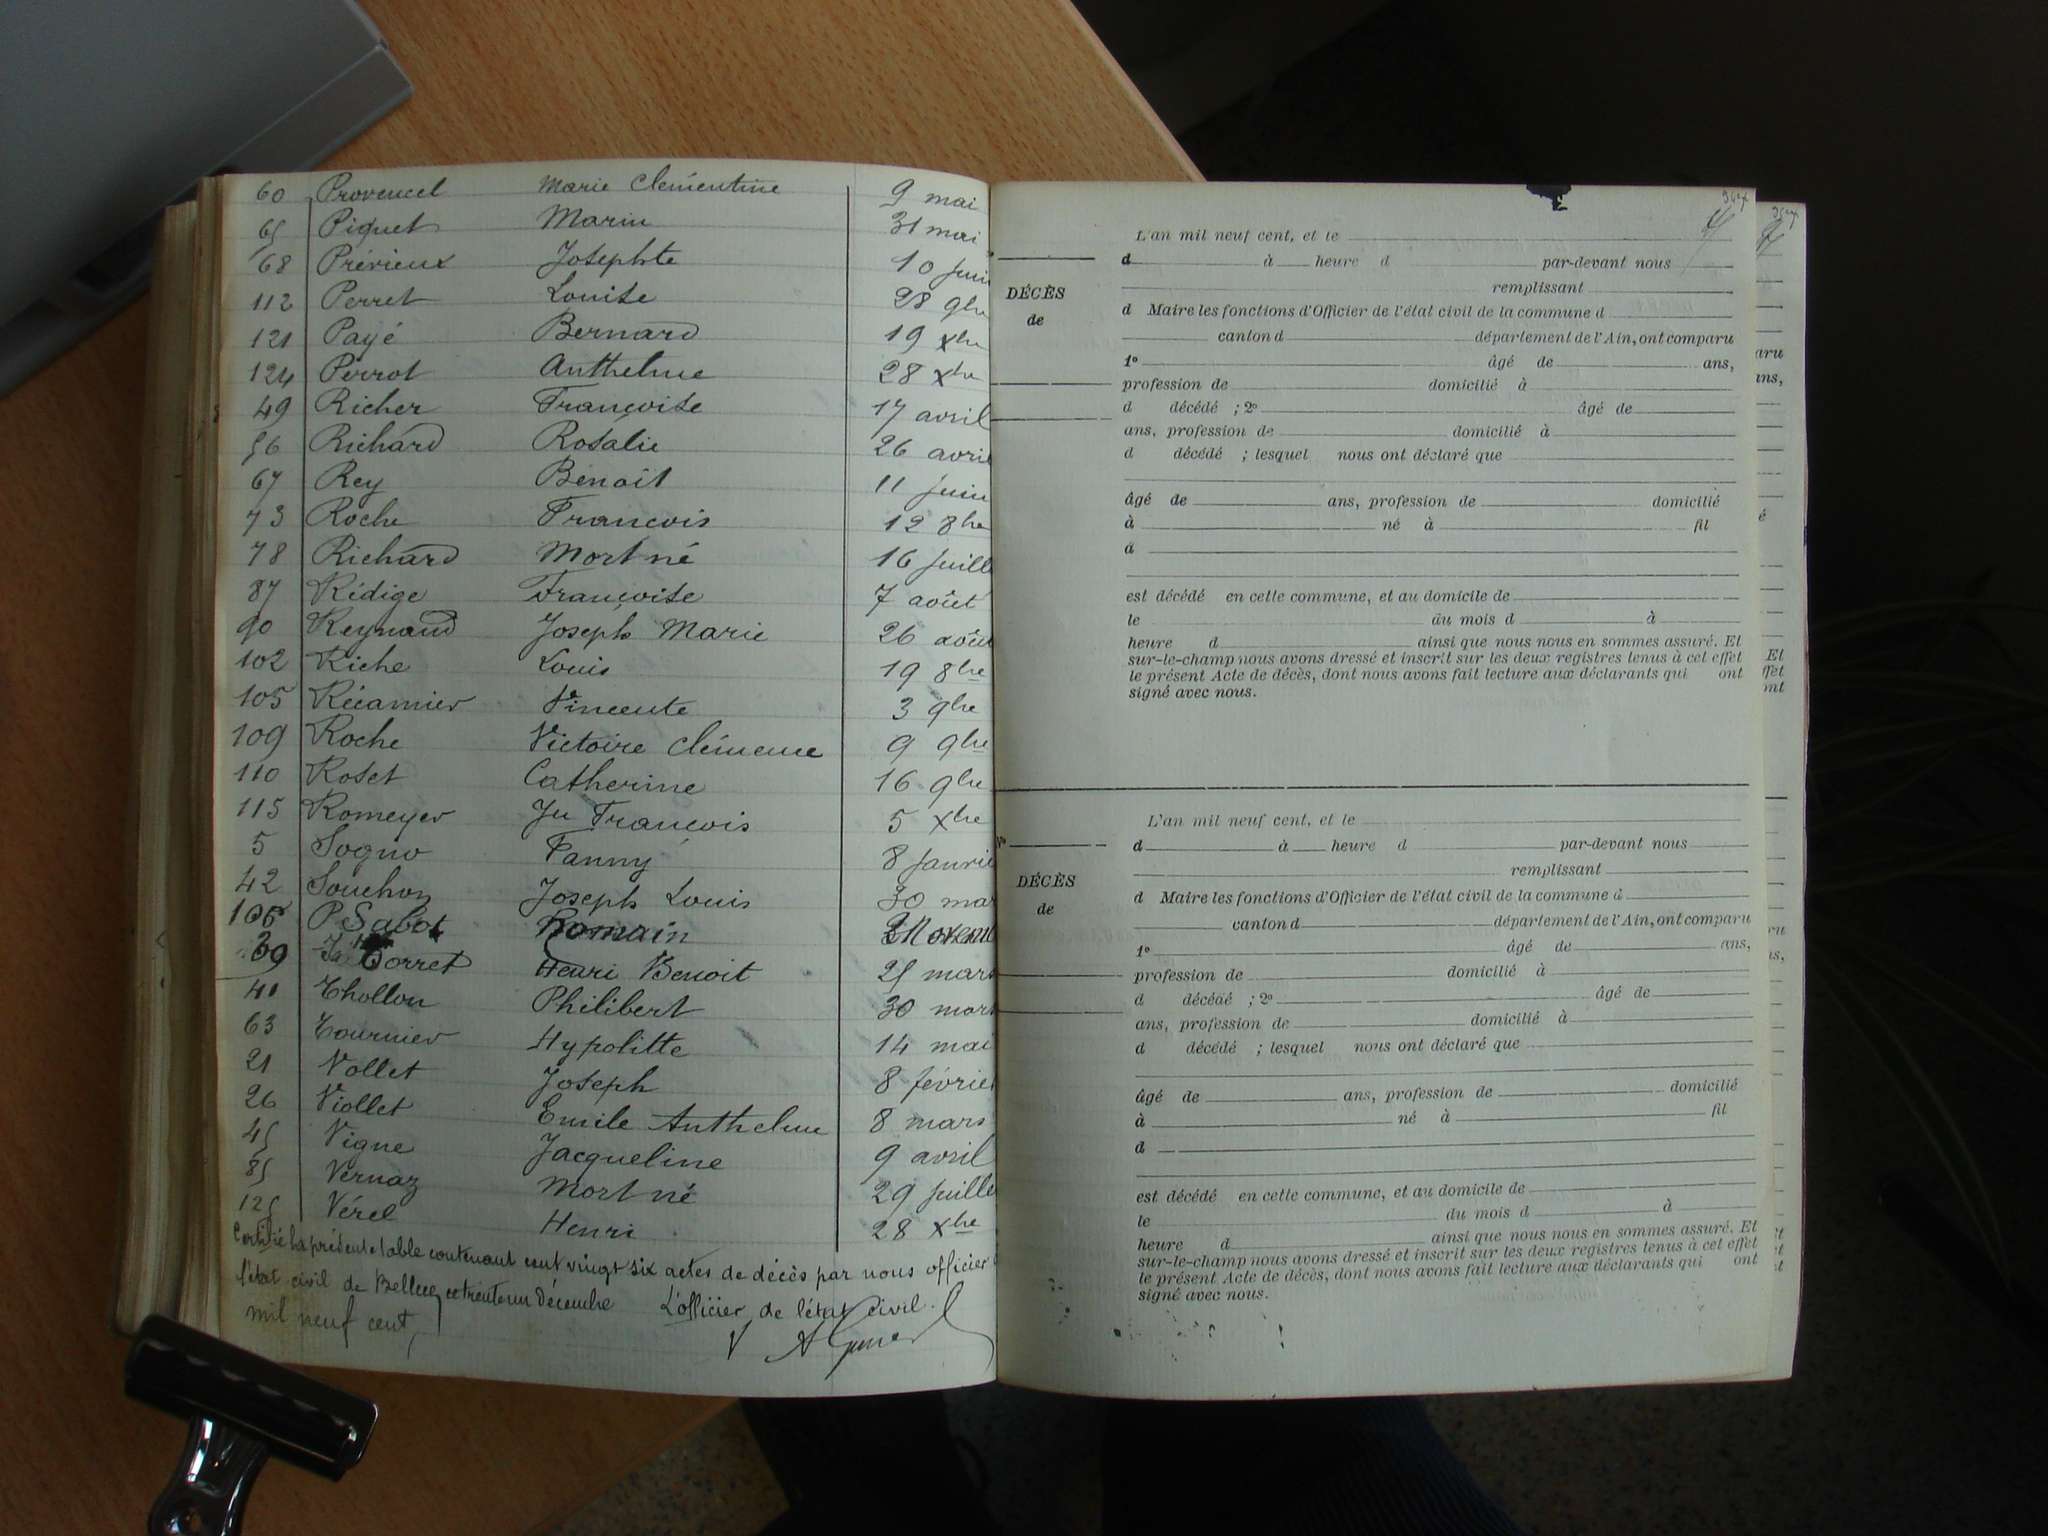 60 Provencel Marie Clémentine 9 mai
65 Piquet Marin 31 mai
68 Prévieux Josephte 10 Juin
112 Perret Louise 28 9bre
121 Payé Bernard 19 Xbre
124 Perrot Anthelme 28 Xbre
49 Richer Françoise 17 avril
56 Richard Rosalie 26 avril
67 Rey Benoît 11 Juin
73 Roche Francois 12 8bre
78 Richard Mort né 16 Juill
87 Rédige Françoise 7 août
90 Reynaud Joseph Marie 26 août
102 Riche Louis 19 8bre
105 Récamier Vincente 3 9bre
109 Roche Victoire Clémence 9 9bre
110 Roset Catherine 16 9bre
115 Romeyer Jn Francois 5 Xbre
5 Sogno Fanny 8 Janvie
42 Souchon Joseph Louis 30 mar
106 P Sabot Romain Novem
39 Torret Henri Benoit 25 mars
41 Thollon Philibert 30 mars
63 Tournier Hypolitte 14 mai
21 Vollet Joseph 8 février
26 Viollet Emile Anthelme 8 mars
45 Vigne Jacqueline 9 avril
85 Vernaz Mort né 29 Juille
125 Vérel Henri 28 Xbre
Certifié la présente table contenant cent vingt six actes de décès par nous officier
l'état civil de Belley ce trente un décembre L'officier de l'état civil.
mil neuf cent
L'an mil neuf cent, et le
d à heure d par-devant nous
remplissant
DÉCÈS
de
d Maire les fonctions d'Officier de l'état civil de la commune d
canton d département de l'Ain, ont comparu
1º âgé de ans,
profession de domicilié à
d décédé ; 2º âgé de
ans, profession de domicilié à
d décédé ; lesquel nous ont déclaré que
âgé de ans, profession de domicilié
à né à fil
d
est décédé en cette commune, et au domicile de
le du mois d à
heure d ainsi que nous nous en sommes assuré. Et
sur-le-champ nous avons dressé et inscrit sur les deux registres tenus à cet effet
le présent Acte de décès, dont nous avons fait lecture aux déclarants qui ont
signé avec nous.
L'an mil neuf cent, et le
d à heure d par-devant nous
remplissant
DÉCÈS
de
d Maire les fonctions d'Officier de l'état civil de la commune d
canton d département de l'Ain, ont comparu
1º âgé de ans,
profession de domicilié à
d décédé ; 2º âgé de
ans, profession de domicilié à
d décédé ; lesquel nous ont déclaré que
âgé de ans, profession de domicilié
à né à fil
d
est décédé en cette commune, et au domicile de
le du mois d à
heure d ainsi que nous nous en sommes assuré. Et
sur-le-champ nous avons dressé et inscrit sur les deux registres tenus à cet effet
le présent Acte de décès, dont nous avons fait lecture aux déclarants qui ont
signé avec nous.